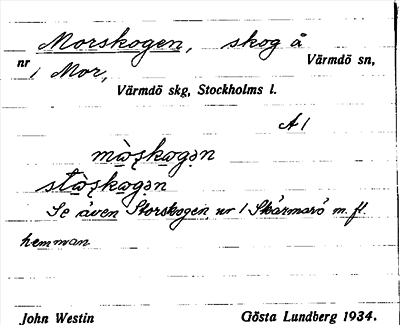 Morskogen, skog å
nr 1 Mor, Värmdö sn,
Värmdö skg, Stockholms l.
A1
mòʂkogən
stòʂkogən
Se även Storskogen, nr 1 Skärmarö m. fl.
hemman
John Westin Gösta Lundberg 1934.